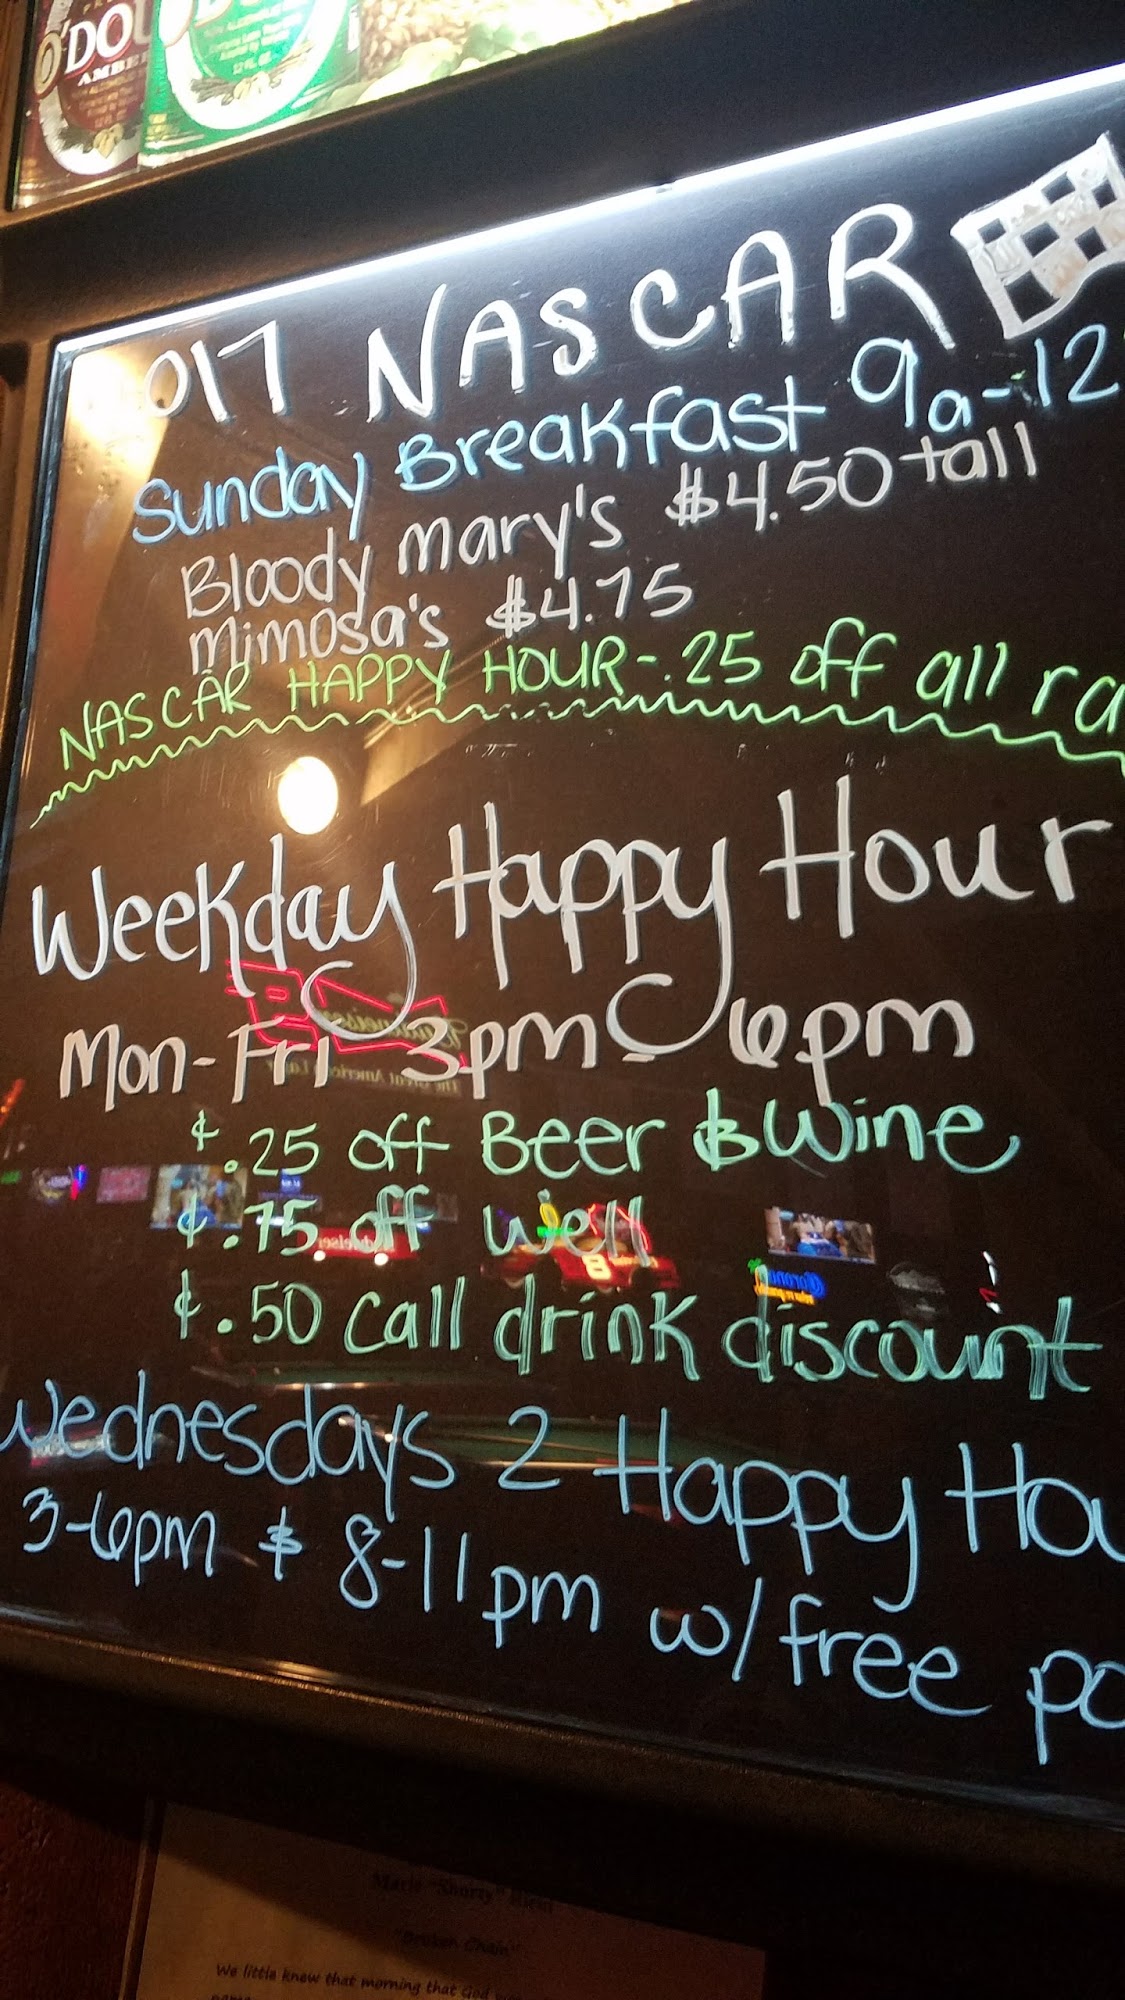 O'DOU
AMBE
017 NASCAR
Sunday Breakfast 9a-12
Bloody Mary's $4.50 tall
Mimosa's $4.75
NASCAR HAPPY HOUR-.25 off all ra
Weekday Happy Hour
Mon-Fri 3pm-6pm
¢.25 off Beer & Wine
¢.75 off well
¢.50 call drink discount
Wednesdays 2 Happy Hou
3-6pm & 8-11pm w/ free po
"Broken Chain"
We little knew that morning that God